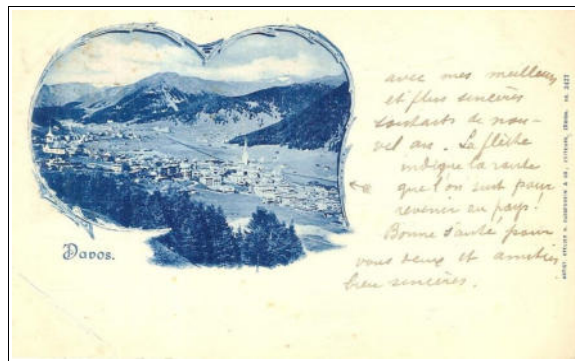 Davos.
avec mes meilleurs
et plus sincères
souhaits de nou-
vel an. La flèche
indique la route
que l'on suit pour
revenir au pays!
Bonne santé pour
vous deux et amitiés
bien sincères.